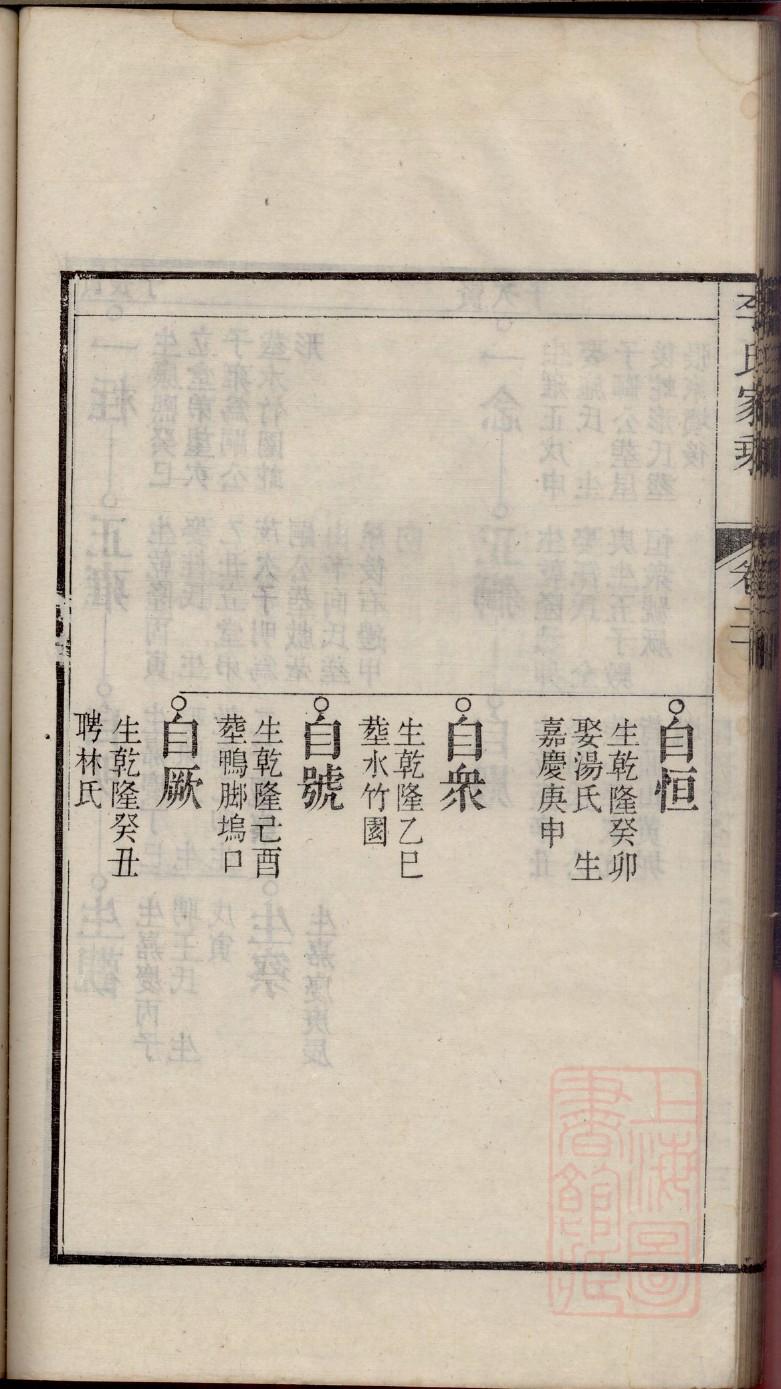 李氏家乘 卷二十
自恒
生乾隆癸卯
娶湯氏 生
嘉慶庚申
自衆
生乾隆乙巳
塟水竹園
自號
生乾隆己酉
塟鴨脚塢口
自厥
生乾隆癸丑
聘林氏
上海圖
書館藏